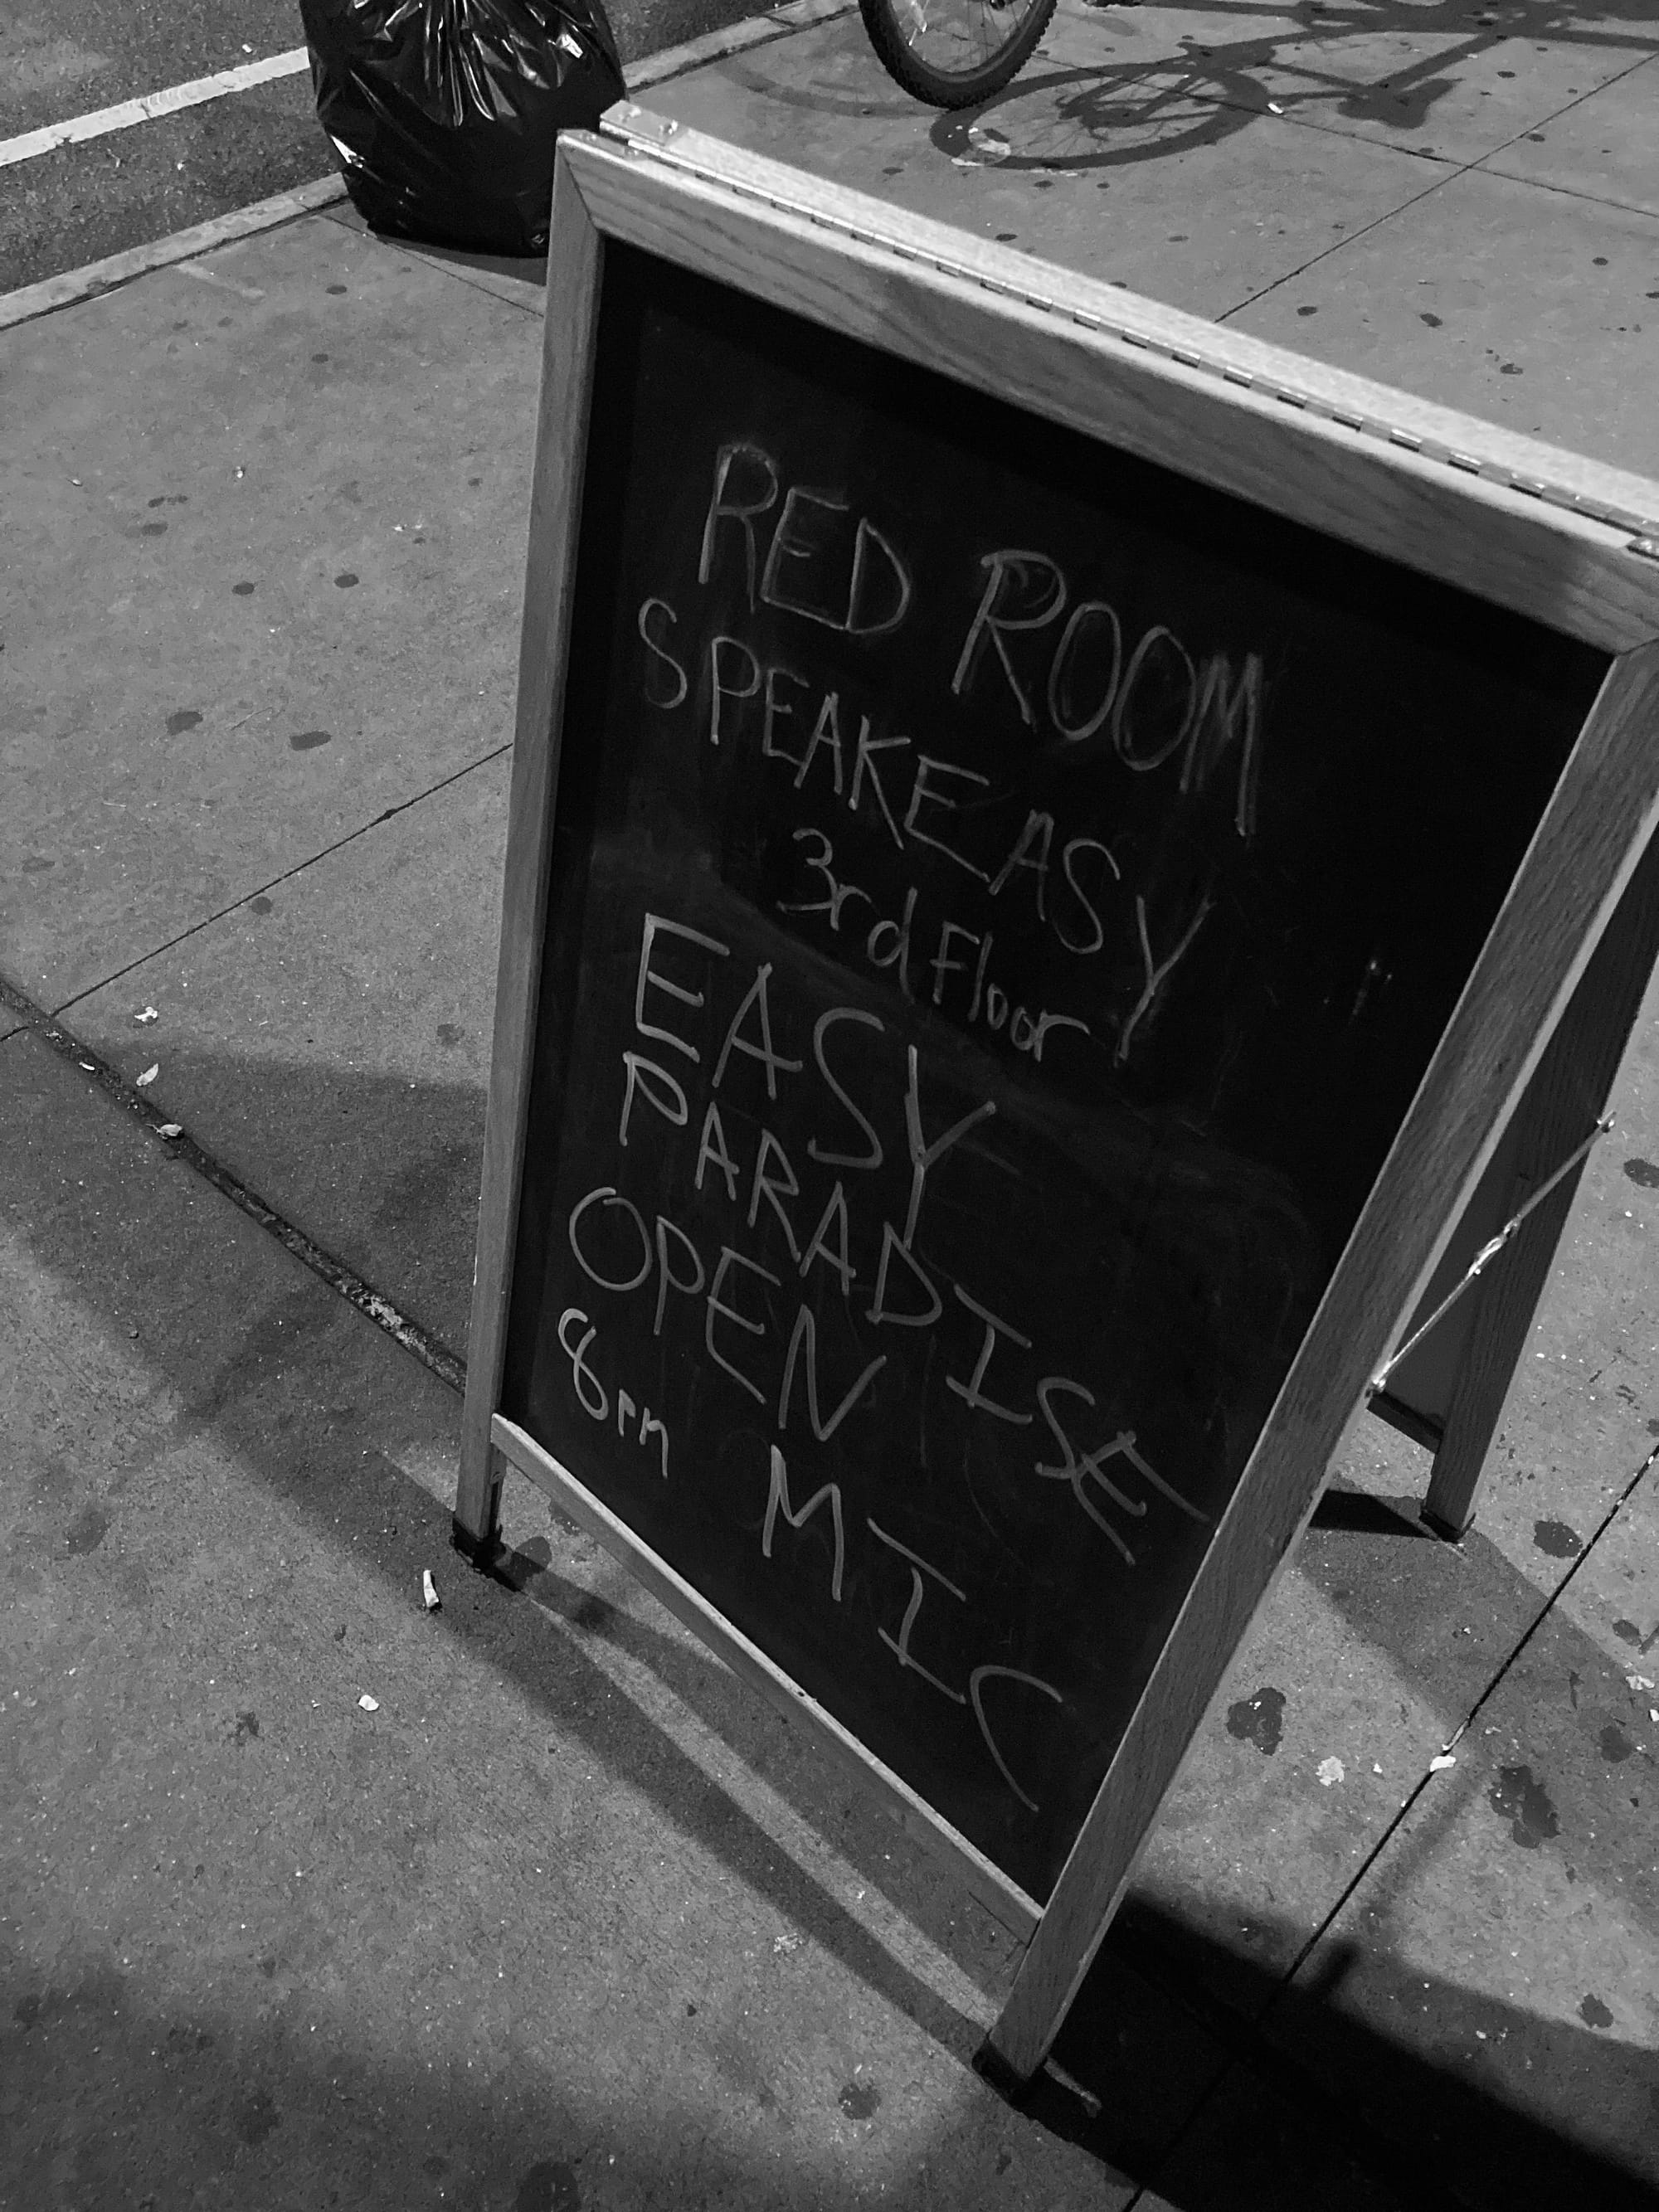 RED ROOM
SPEAKEASY
3rd Floor
EASY
PARADISE
OPEN MIC
8pm